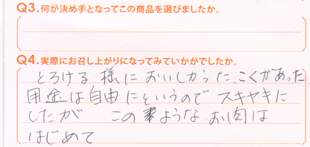 Q3.何が決め手となってこの商品を選びましたか。
Q4.実際にお召し上がりになってみていかがでしたか。
とろける 様に おいしかった、こくがあった
用途は自由にというので スキヤキに
したが この ような お肉は
はじめて